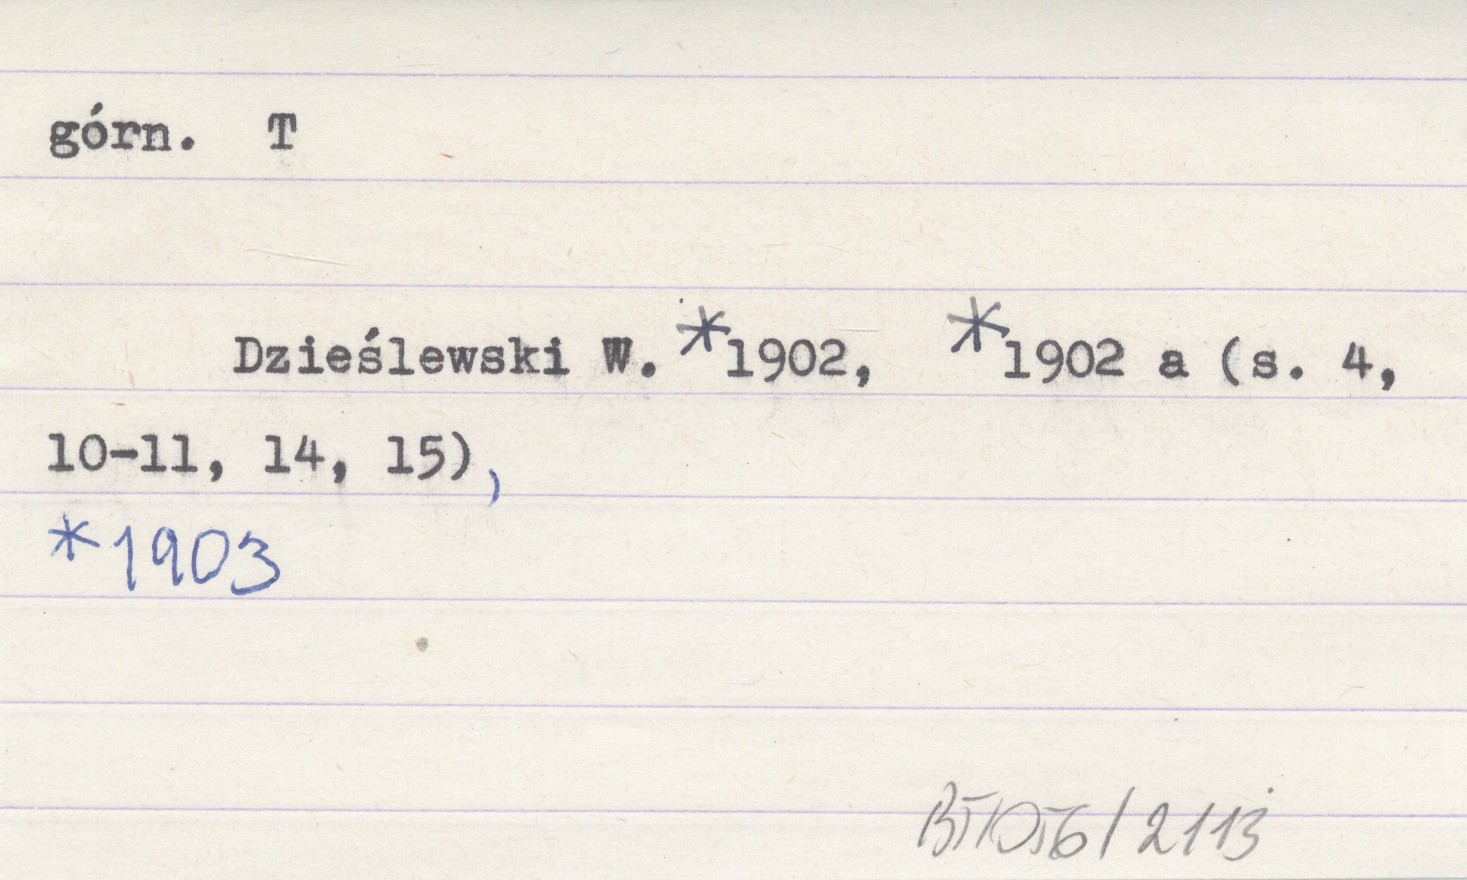 górn. T
Dzieślewski W. *1902, *1902 a (s. 4,
10-11, 14, 15),
*1903
/2113